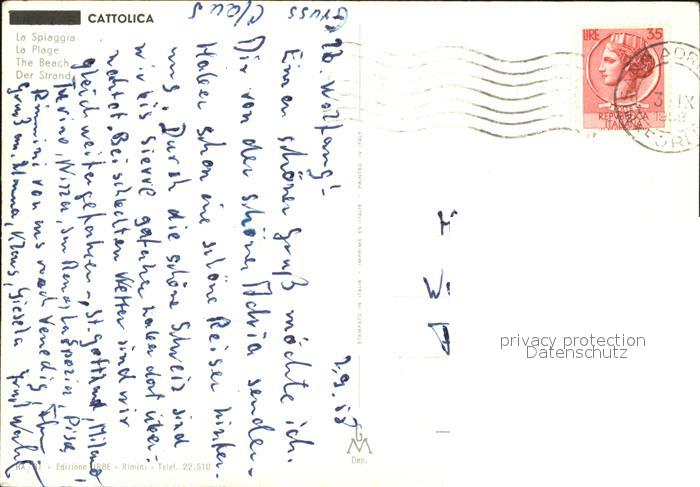 CATTOLICA
La Spiaggia
La Plage
The Beach
Der Strand
2.9.58
Wolfgang!
Einen schönen Gruß möchte ich
Dir von der schönen Adria senden.
Haben schon eine schöne Reise hinter
uns. Durch die schöne Schweiz sind
wir bis Sierre gefahren haben dort über-
nachtet. Bei schlechten Wetter sind wir
gleich weitergefahren St. Gotthard, Milano
Torino, Nizza, San Remo, La Spezia, Pisa,
Rimini von uns nach Venedig
Mama, Klaus, Gisela
Gruss
Claus
STAMPATO IN ITALIA - IMPRIMÉ EN ITALIE - PRINTED IN ITALY
Dep.
Edizione URBE - Rimini - Telef. 22.510
LIRE 35
REPVBBLICA
ITALIANA
privacy protection
Datenschutz